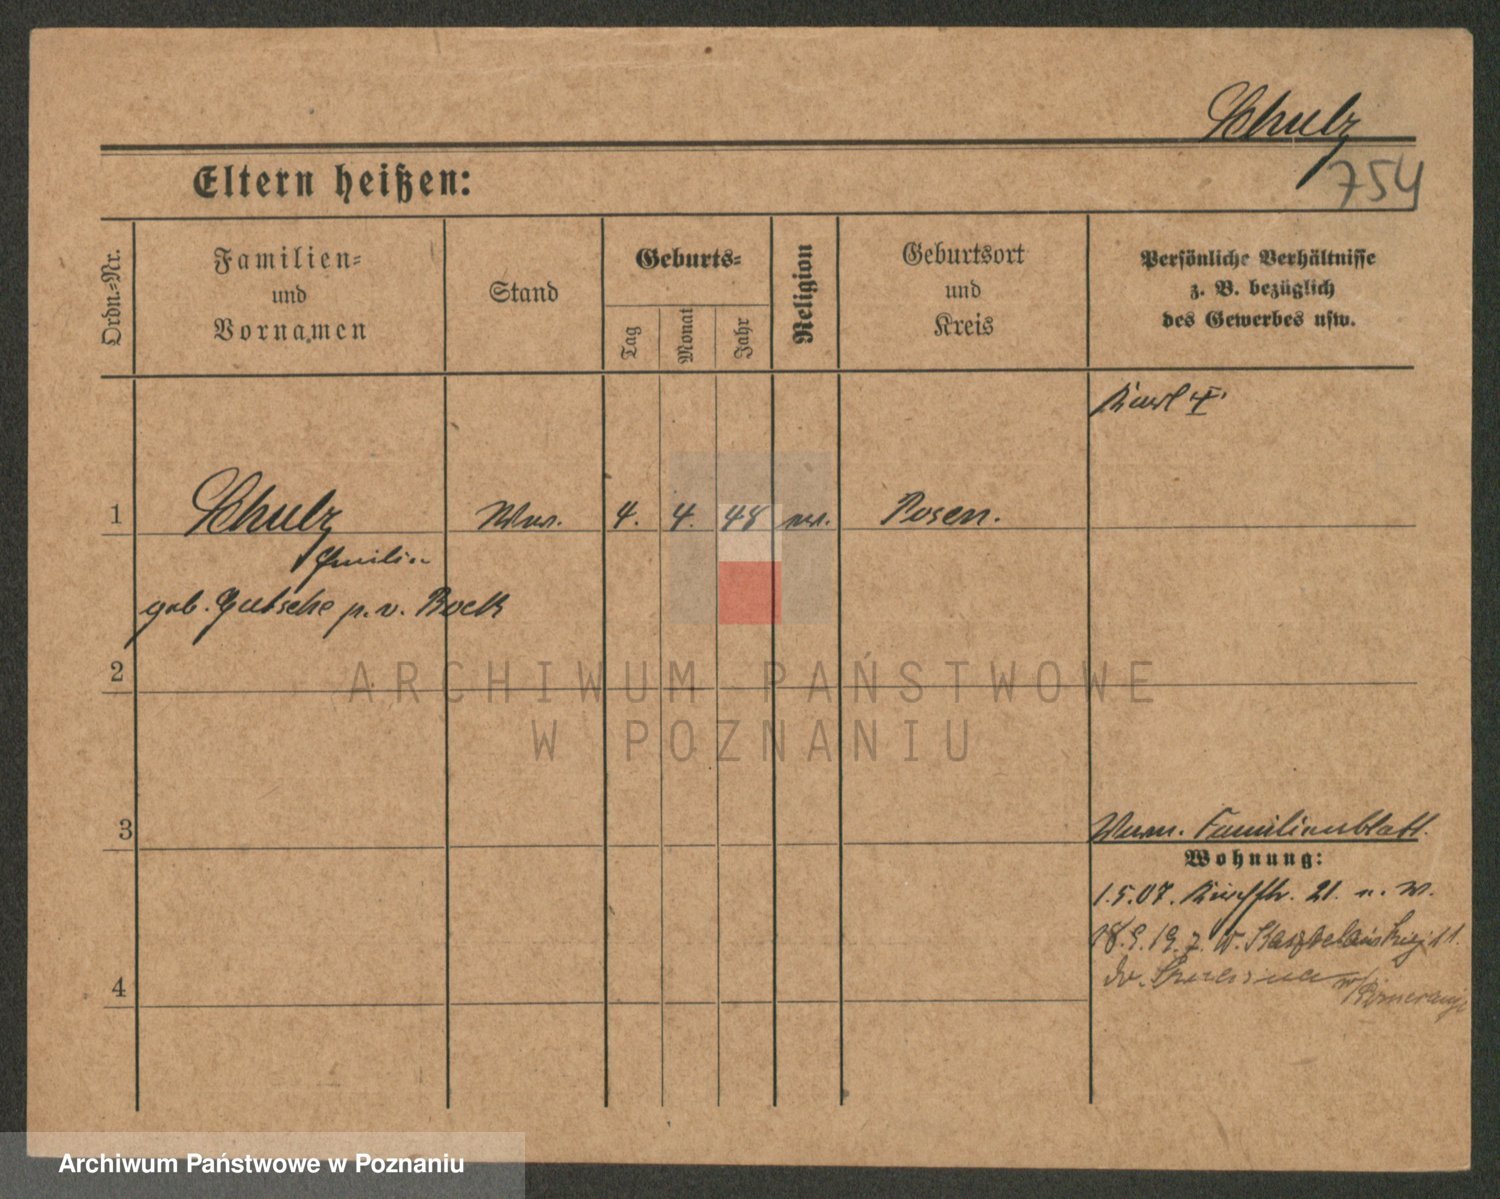 Schulz
754
Eltern heißen:
Ordn.-Nr.
Familien-
und
Vornamen
Stand
Geburts-
Tag
Monat
Jahr
Religion
Geburtsort
und
Kreis
Persönliche Verhältnisse
z. B. bezüglich
des Gewerbes usw.
Karl
1
Schulz
Ww.
4.
4.
48
ev.
Posen.
Emilie
geb. Gutsche p. v. Bock
2
3
Familienblatt.
Wohnung:
1.5.07. 21. n. W.
4
18.9.19. z. W.
ARCHIWUM PAŃSTWOWE
W POZNANIU
Archiwum Państwowe w Poznaniu